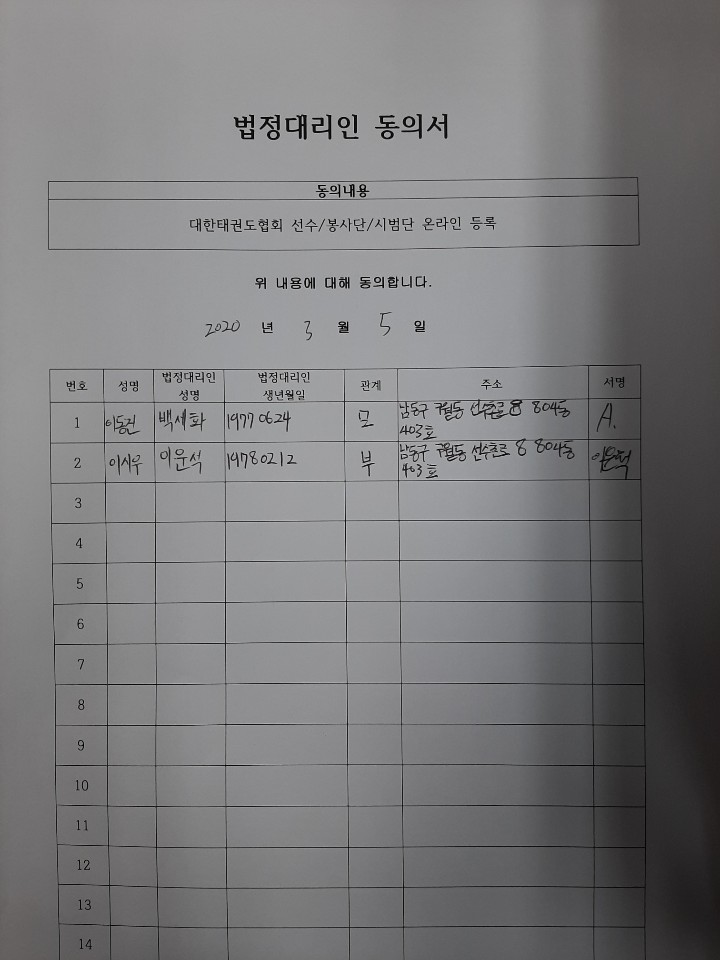 법정대리인 동의서
동의내용
대한태권도협회 선수/봉사단/시범단 온라인 등록
위 내용에 대해 동의합니다.
2020 년 3 월 5 일
번호 성명 법정대리인 성명 법정대리인 생년월일 관계 주소 서명
1 이동건 백세화 19770624 모 남동구 구월동 선수촌로 8 804동 403호 A.
2 이시우 이운석 19780212 부 남동구 구월동 선수촌로 8 804동 403호
3
4
5
6
7
8
9
10
11
12
13
14